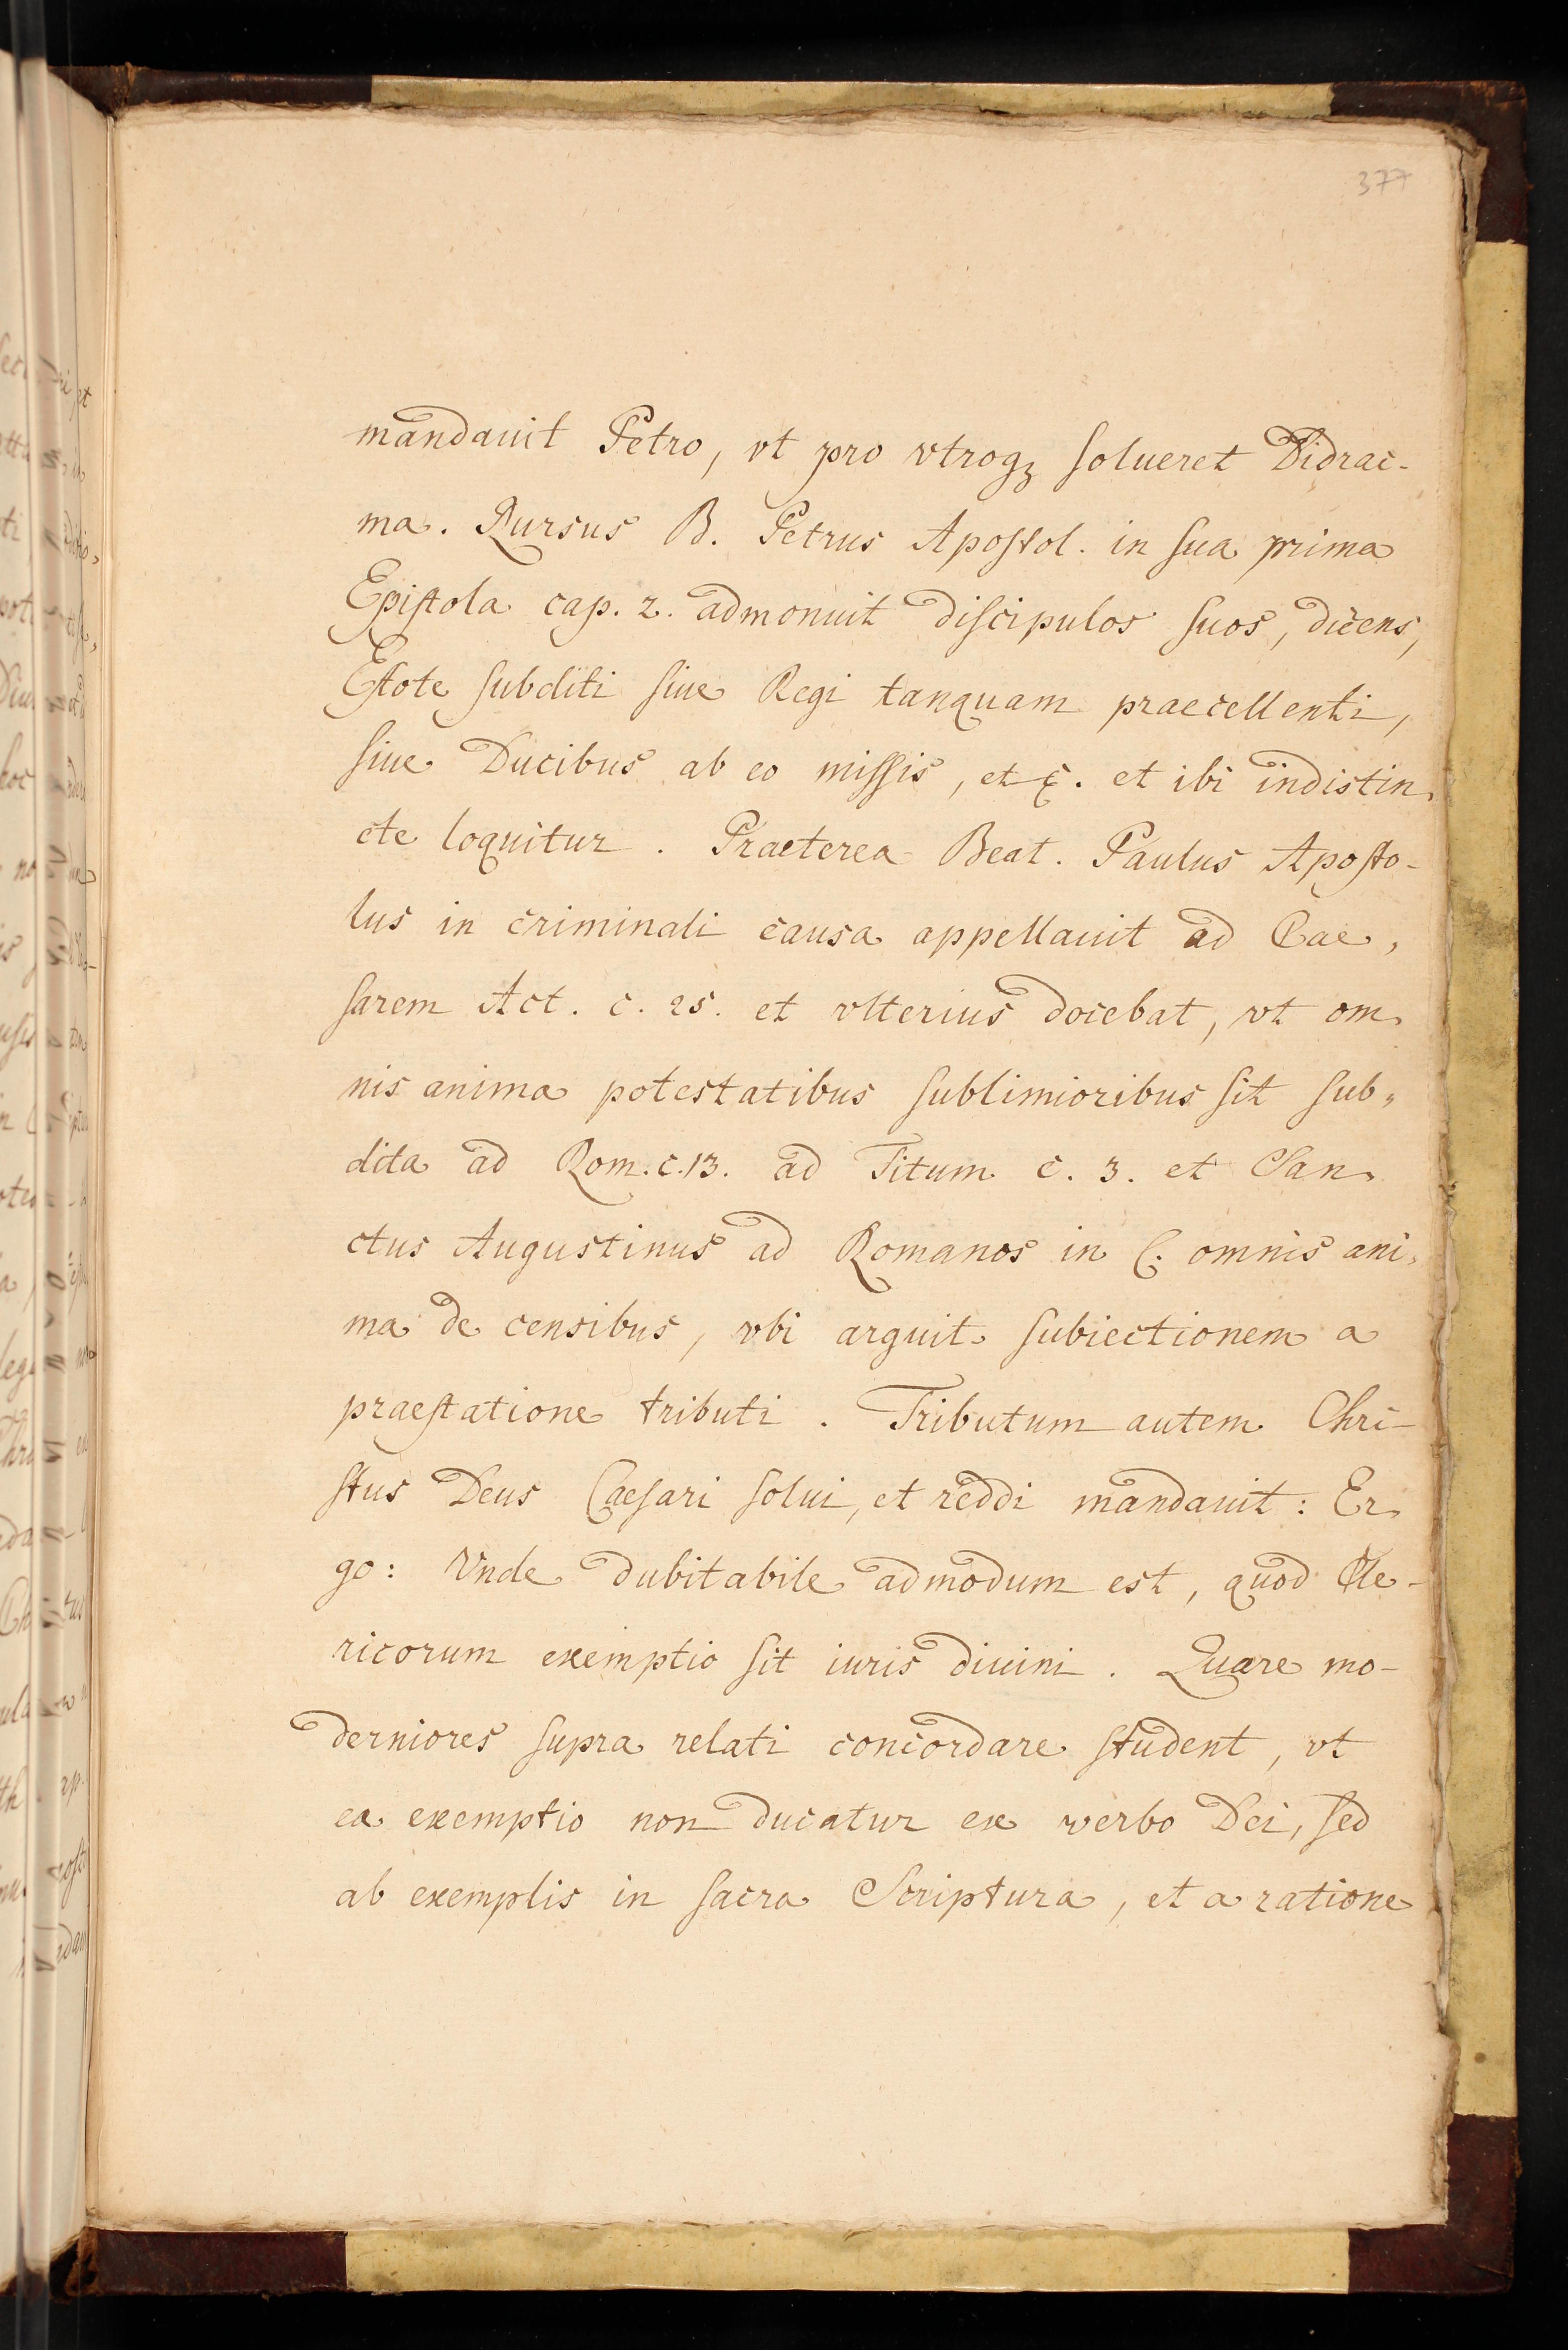 377
mandauit Petro, vt pro vtroqȝ solueret Didrac-
ma. Rursus B. Petrus Apostol. in sua prima
Epistola cap. 2. admonuit discipulos suos, dicens,
Estote subditi siue Regi tanquam praecellenti,
siue Ducibus ab eo missis, et c. et ibi indistin,
cte loquitur. Praeterea Beat. Paulus Aposto-
lus in criminali causa appellauit ad Cae,
sarem Act. c. 25. et vlterius docebat, vt om,
nis anima potestatibus sublimioribus sit sub,,
dita ad Rom. c. 13. ad Titum c. 3. et San,
ctus Augustinus ad Romanos in C. omnis ani,
ma de censibus, vbi arguit subiectionem a
praestatione tributi. Tributum autem Chri-
stus Deus Caesari solui, et reddi mandauit: Er,
go: Vnde dubitabile admodum est, quod Cle-
ricorum exemptio sit iuris diuini. Quare mo-
derniores supra relati concordare student, vt
ea exemptio non ducatur ex verbo Dei, sed
ab exemplis in sacra Scriptura, et a ratione